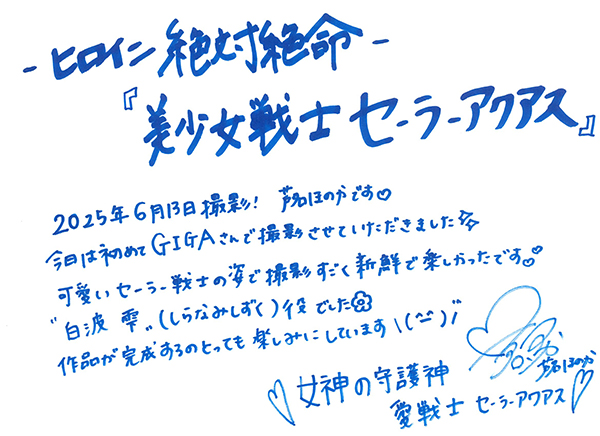 - ヒロイン 絶対絶命 -
『美少女戦士 セーラーアクアス』
2025年6月13日撮影! 芦名ほのかです♡
今日は初めてGIGAさんで撮影させていただきました
可愛いセーラー戦士の姿で撮影すごく新鮮で楽しかったです
"白波 雫"(しらなみしずく)役でした
作品が完成するのとっても楽しみにしています\(^-^)/
芦名ほのか
♡女神の守護神
愛戦士 セーラーアクアス♡